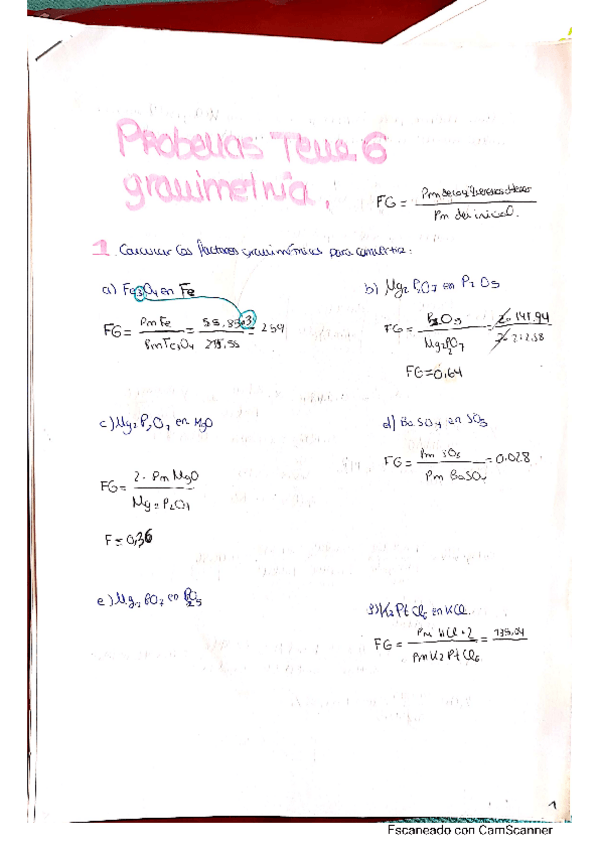 Problemas Tema 6
gravimetría.
FG = Pm del
Pm del inicial.
1. Calcular los factores gravimétricos para convertir:
a) Fe3O4 en Fe
FG = Pm Fe / Pm Fe3O4 = 55,85·3 =
b) Mg2P2O7 en P2O5
FG = P2O5 / Mg2P2O7 = 2· 141.94 / 2·
FG=0.64
c) Mg2P2O7 en MgO
FG = 2· Pm MgO / Mg2P2O7
F = 0,36
d) BaSO4 en SO3
FG = Pm SO3 / Pm BaSO4 = 0.028
e) Mg2PO7 en
f) K2PtCl6 en KCl.
FG = Pm KCl·2 / Pm K2PtCl6 =
1
Escaneado con CamScanner